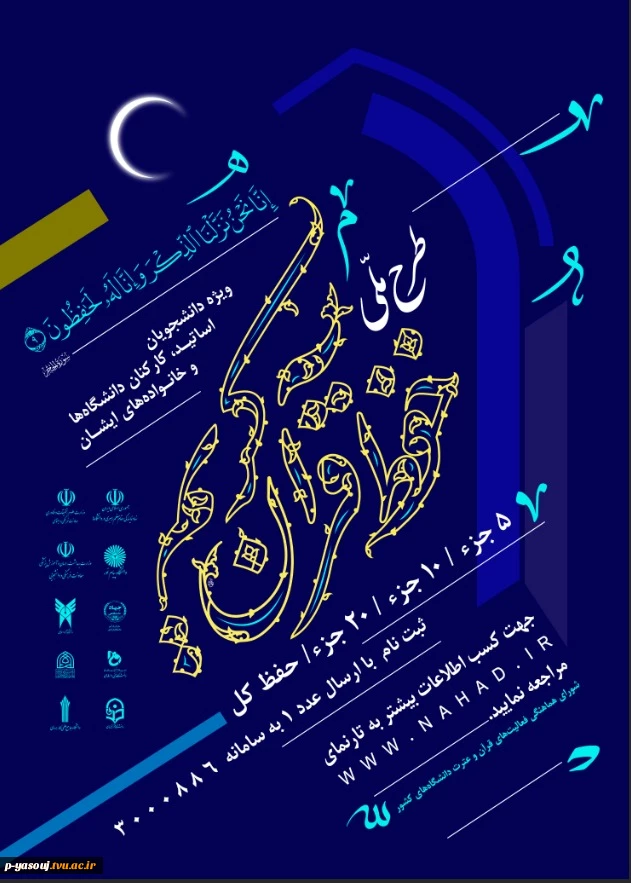 إِنَّا نَحْنُ نَزَّلْنَا ٱلذِّكْرَ وَإِنَّا لَهُۥ لَحَٰفِظُونَ ۹
ویژه دانشجویان
اساتید، کارکنان دانشگاه‌ها
و خانواده‌های ایشان
طرح ملّی
حفظ قرآن کریم
۵ جزء / ۱۰ جزء / ۲۰ جزء / حفظ کل
ثبت نام با ارسال عدد ۱ به سامانه ۳۰۰۰۰۸۸۶
جهت کسب اطلاعات بیشتر به تارنمای
WWW.NAHAD.IR
مراجعه نمایید.
شورای هماهنگی فعالیت‌های قرآن و عترت دانشگاه‌های کشور
p-yasouj.tvu.ac.ir